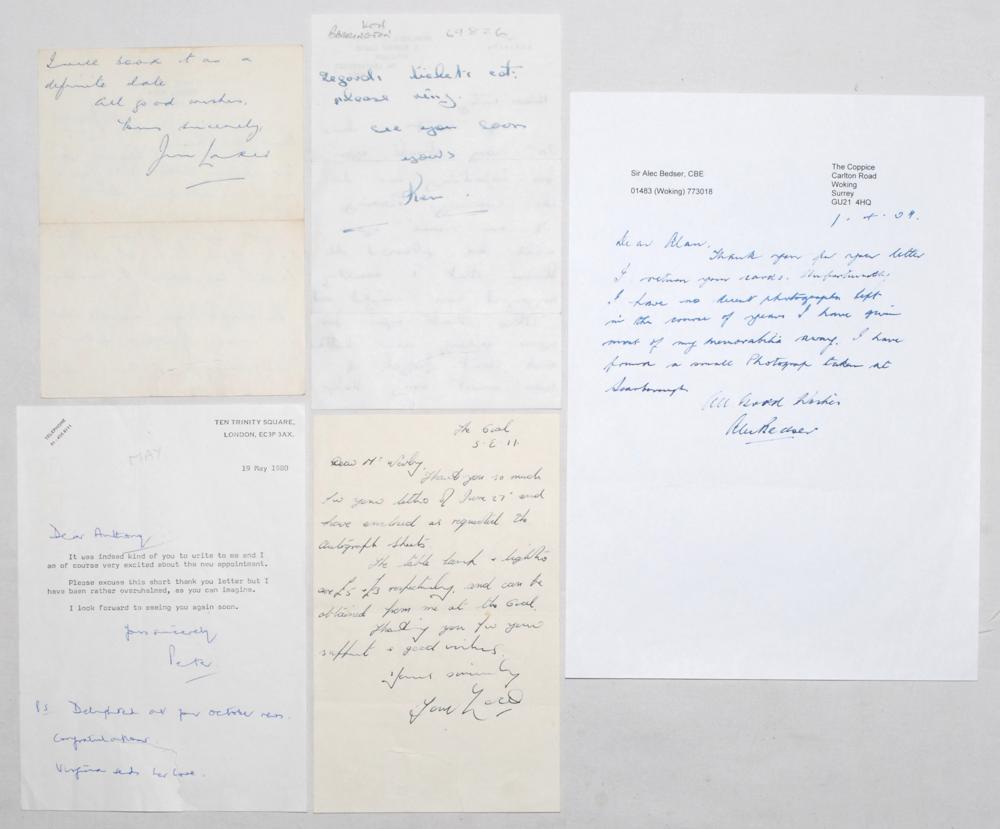 I will book it as a
definite date
All good wishes,
Yours sincerely,
Jim Laker
KEN
BARRINGTON
69826
regards tickets ect:
please ring.
see you soon
yours
Ken.
Sir Alec Bedser, CBE
01483 (Woking) 773018
The Coppice
Carlton Road
Woking
Surrey
GU21 4HQ
Dear Alan,
Thank you for your letter
I return your cards. Unfortunately
I have no decent photographs left
in the course of years I have given
most of my memorabilia away. I have
found a small Photograp taken at
Scarborough
All Good Wishes
Alec Bedser
TELEPHONE
TEN TRINITY SQUARE,
LONDON, EC3P 3AX.
MAY
19 May 1980
Dear Anthony
It was indeed kind of you to write to me and I
am of course very excited about the new appointment.
Please excuse this short thank you letter but I
have been rather overwhelmed, as you can imagine.
I look forward to seeing you again soon.
Yours sincerely
Peter
PS Delighted at your October news.
Congratulations.
Virginia sends her love.
The Oval
S.E. 11.
Dear Mr
Thank you so much
for your letter of June 27 and
have enclosed as requested the
autograph sheets.
The table lamp & lighter
are £5 & £3 respectively, and can be
obtained from me at the Oval.
Thanking you for your
support & good wishes.
Yours sincerely
Tony Lock